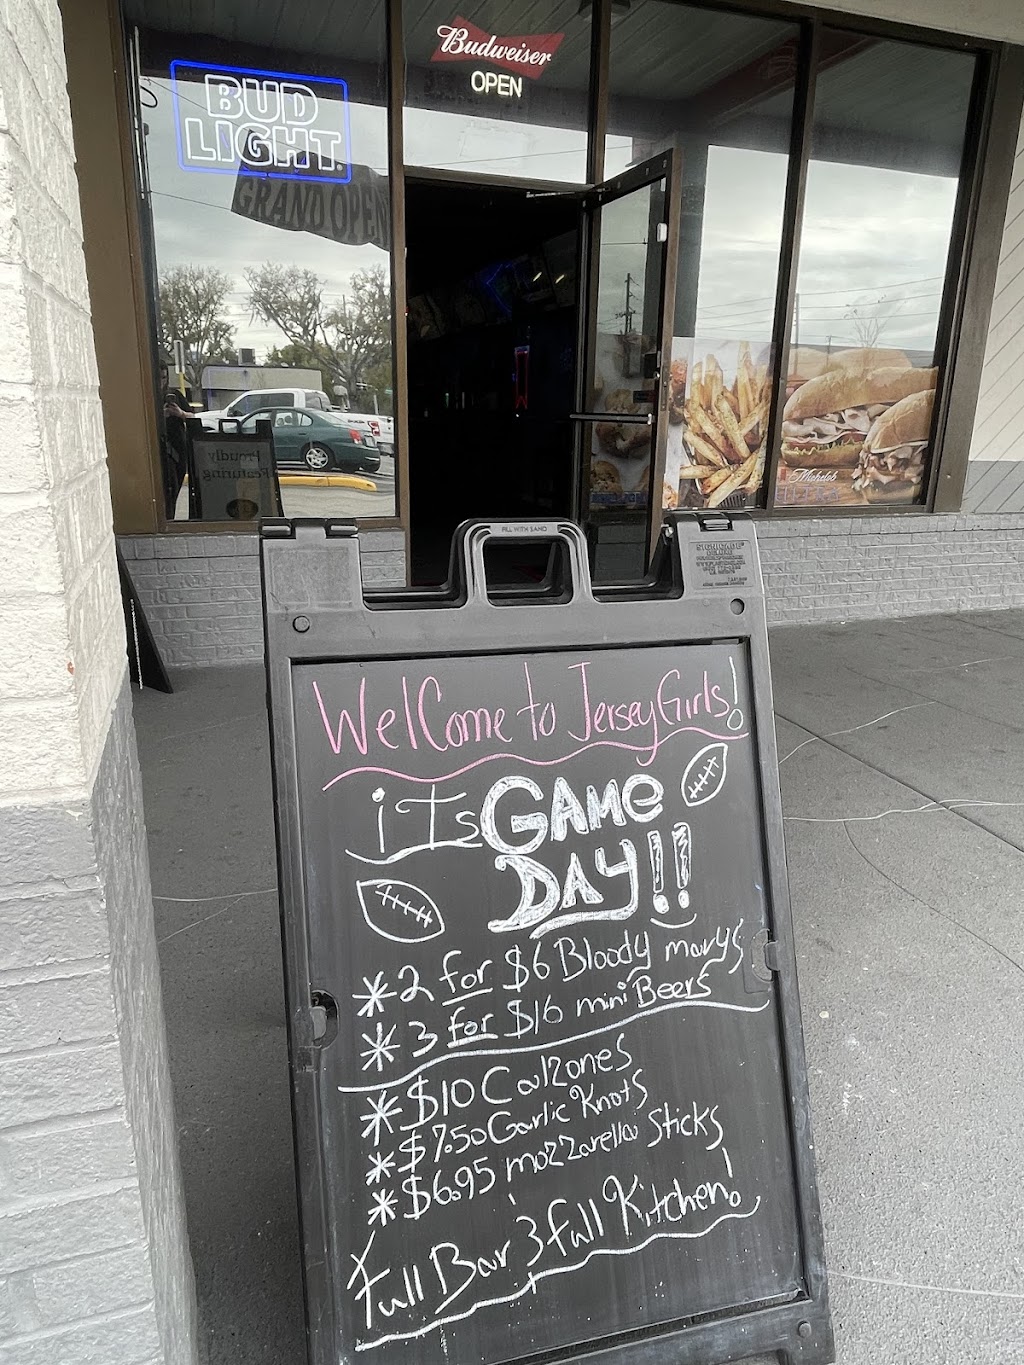 Budweiser
OPEN
BUD
LIGHT.
GRAND OPEN
Proudly
Featuring
Michelob
ULTRA
FILL WITH SAND
SIGNICADE®
DELUXE
WelCome to Jersey Girls!
iTs GAMe
DAY!!
*2 for $6 Bloody marys
* 3 for $16 mini Beers
*$10 Calzones
*$7.50 Garlic Knots
*$6.95 mozzarella Sticks
Full Bar & full Kitchen!